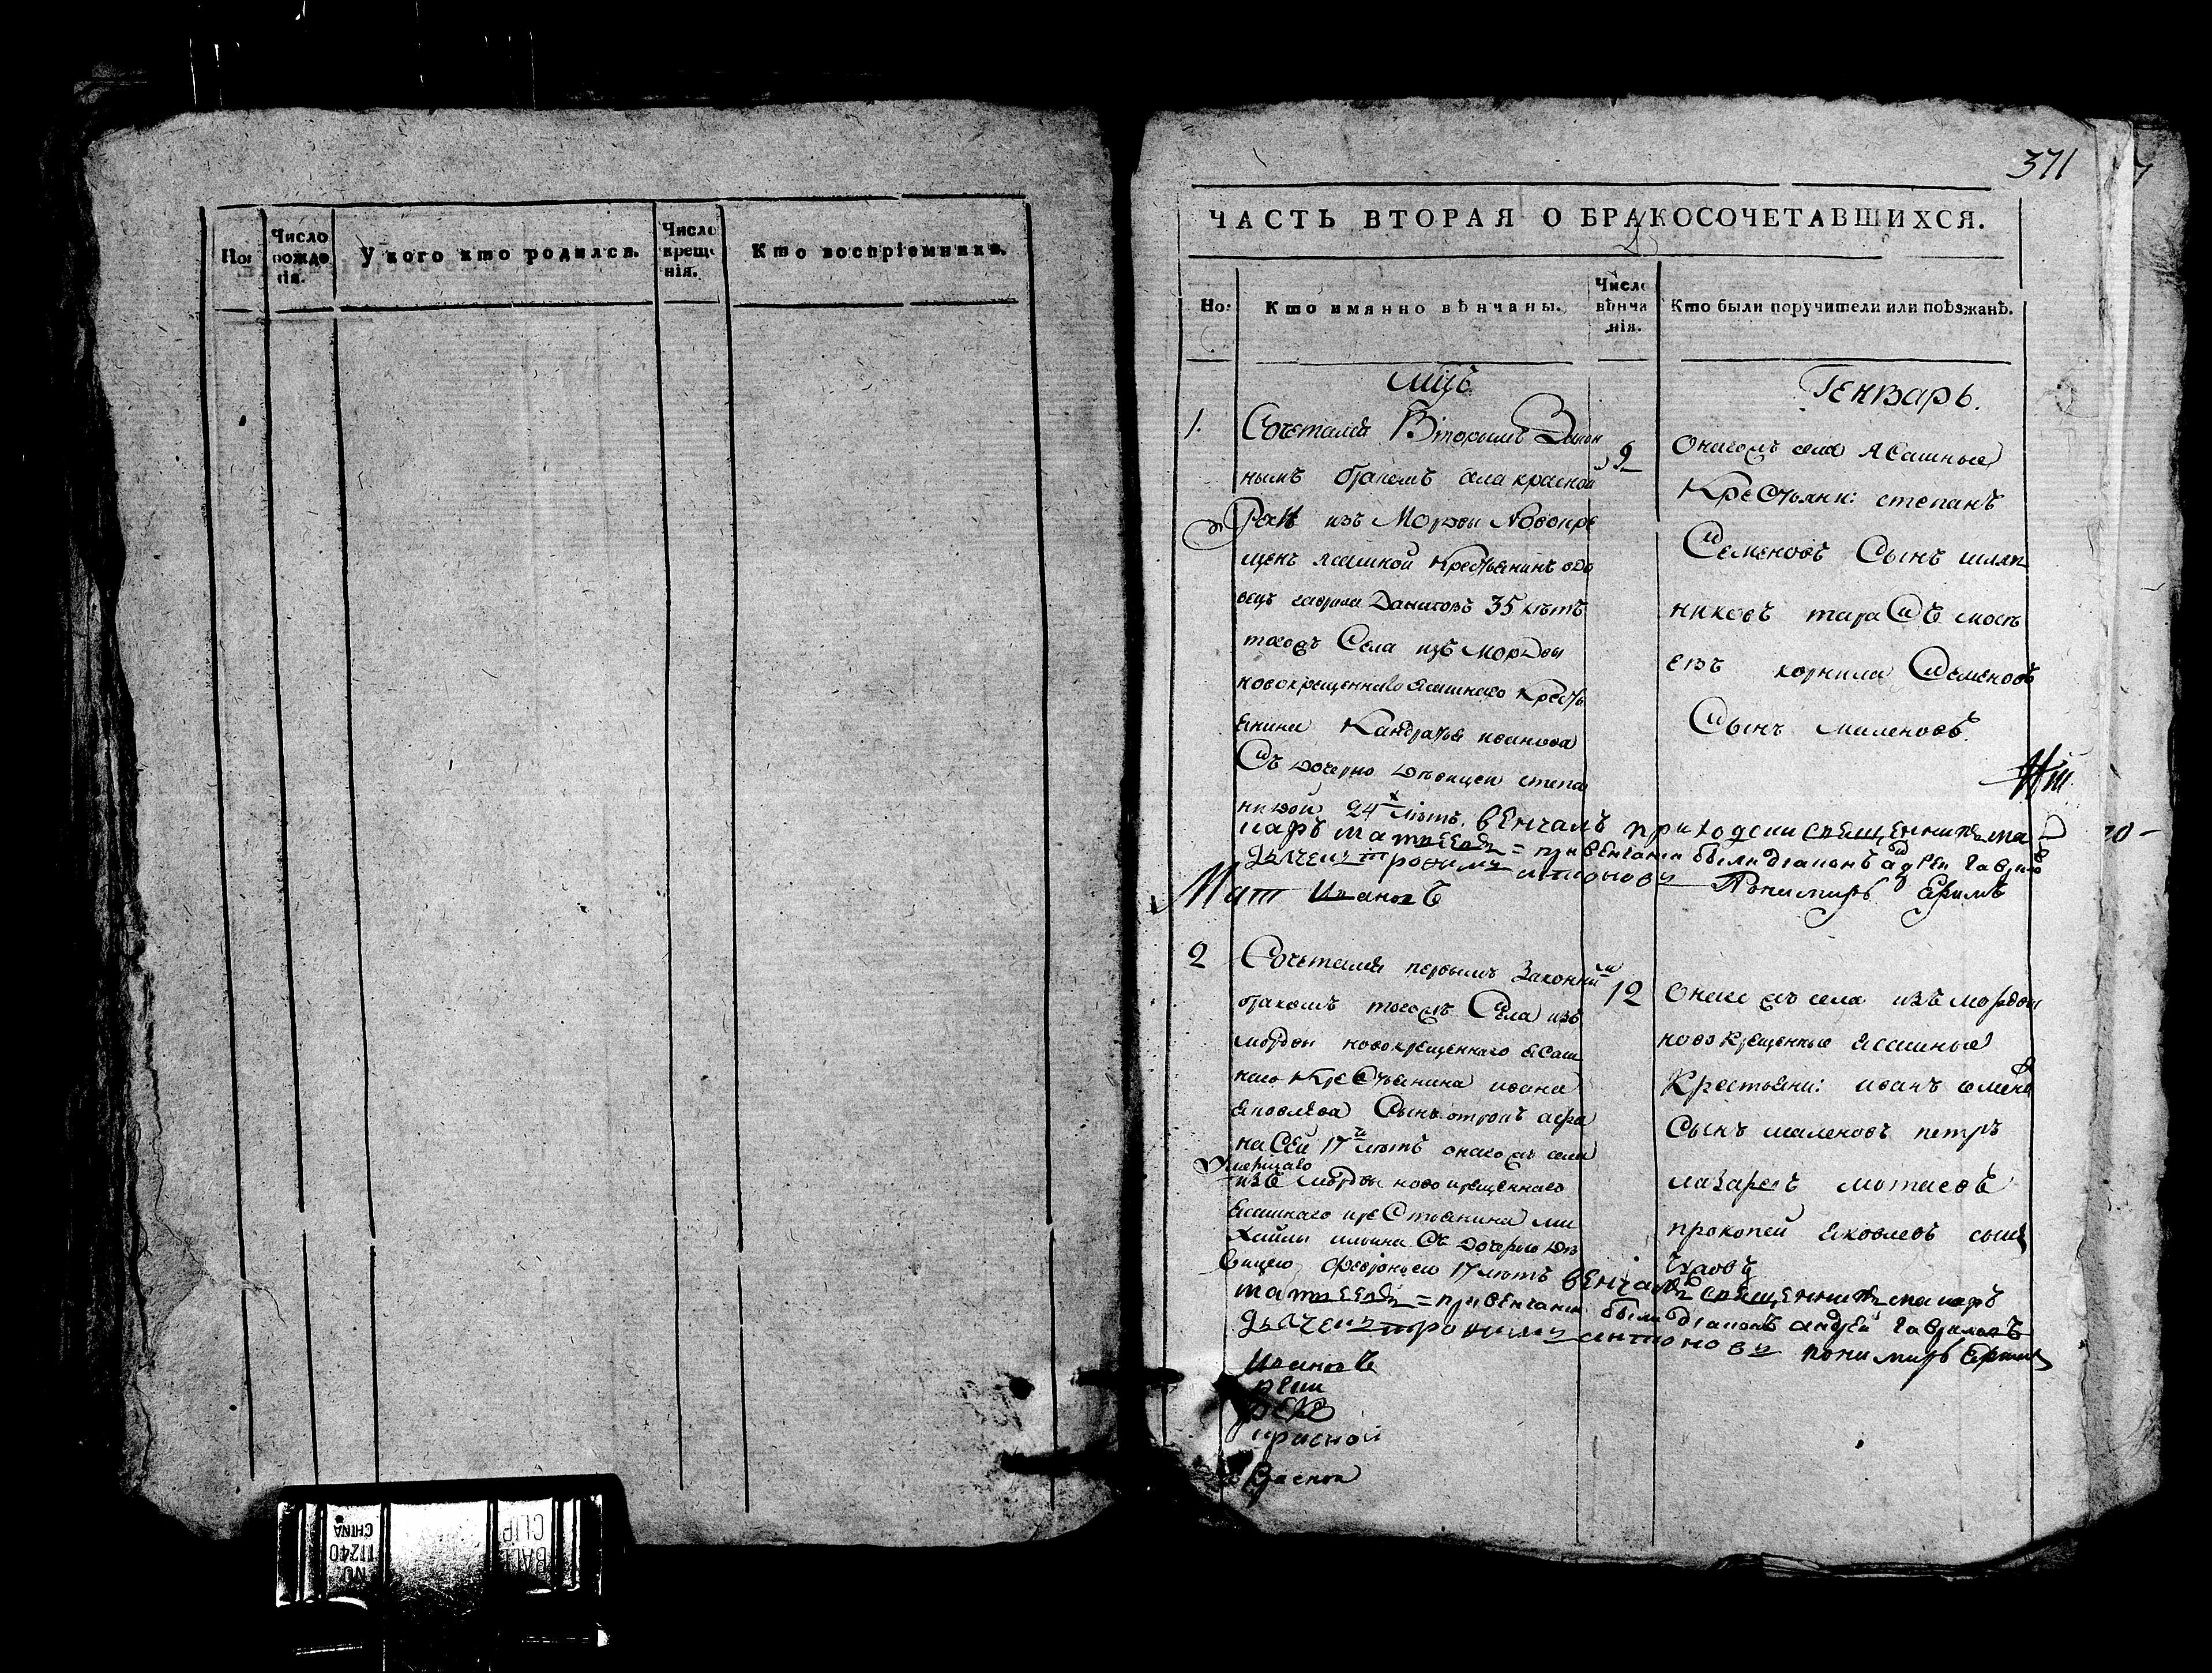 Но:
Число рожде нія.
У кого кто родился.
Число креще нія.
Кто воспріемники.
371
ЧАСТЬ ВТОРАЯ О БРАКОСОЧЕТАВШИХСЯ.
Но:
Кто имянно вѣнчаны.
Число вѣнча нія.
Кто были поручители или поѣзжанѣ.
Мцъ
Генварь.
1.
Сочетался Вторымъ Закон
нымъ бракомъ села красной
из Мордвы Новокре
щенъ ясашной Крестьянинъ вдо
вецъ гаврила Даниловъ 35 лѣтъ
тогожъ Села изъ Мордвы
новокрещеннаго ясашнаго Кресть
янина Кандратья иванова
Съ дочерью дѣвицей степа
нидой 24 лѣтъ. венчалъ приходски священникъ ма
каръ матвеевъ = при венчании были диаконъ андрей гаври
дьячекъ трофимъ антоновъ Пономарь Ефимъ
Ивановъ
9
Онагожъ села Ясашные
Крестьяни: степанъ
Семеновъ Сынъ шляп
никовъ тарасъ
евъ корнила Семеновъ
Сынъ маленовъ.
2
Сочетался первымъ Законны
бракомъ тогожъ Села изъ
мордвы новокрещеннаго ясаш
наго Крестьянина ивана
яковлева Сынъ отрокъ афа
насей 17 лѣтъ онагожъ села
умершаго
изъ мордвы новокрещеннаго
ясашнаго крестьянина ми
хайлы ильина Съ дочерью дѣ
вицею 17 лѣтъ венчалъ священникъ макаръ
матвеевъ = при венчании были диаконъ андрей гавриловъ
дьячекъ трофимъ антоновъ пономарь Ефимъ
Ивановъ
красной
Красной
12
Онаго жъ села изъ мордвы
новокрещенные ясашные
Крестьяни: иванъ семено
Сынъ маленовъ петръ
лазаревъ
прокопей яковлевъ сынъ